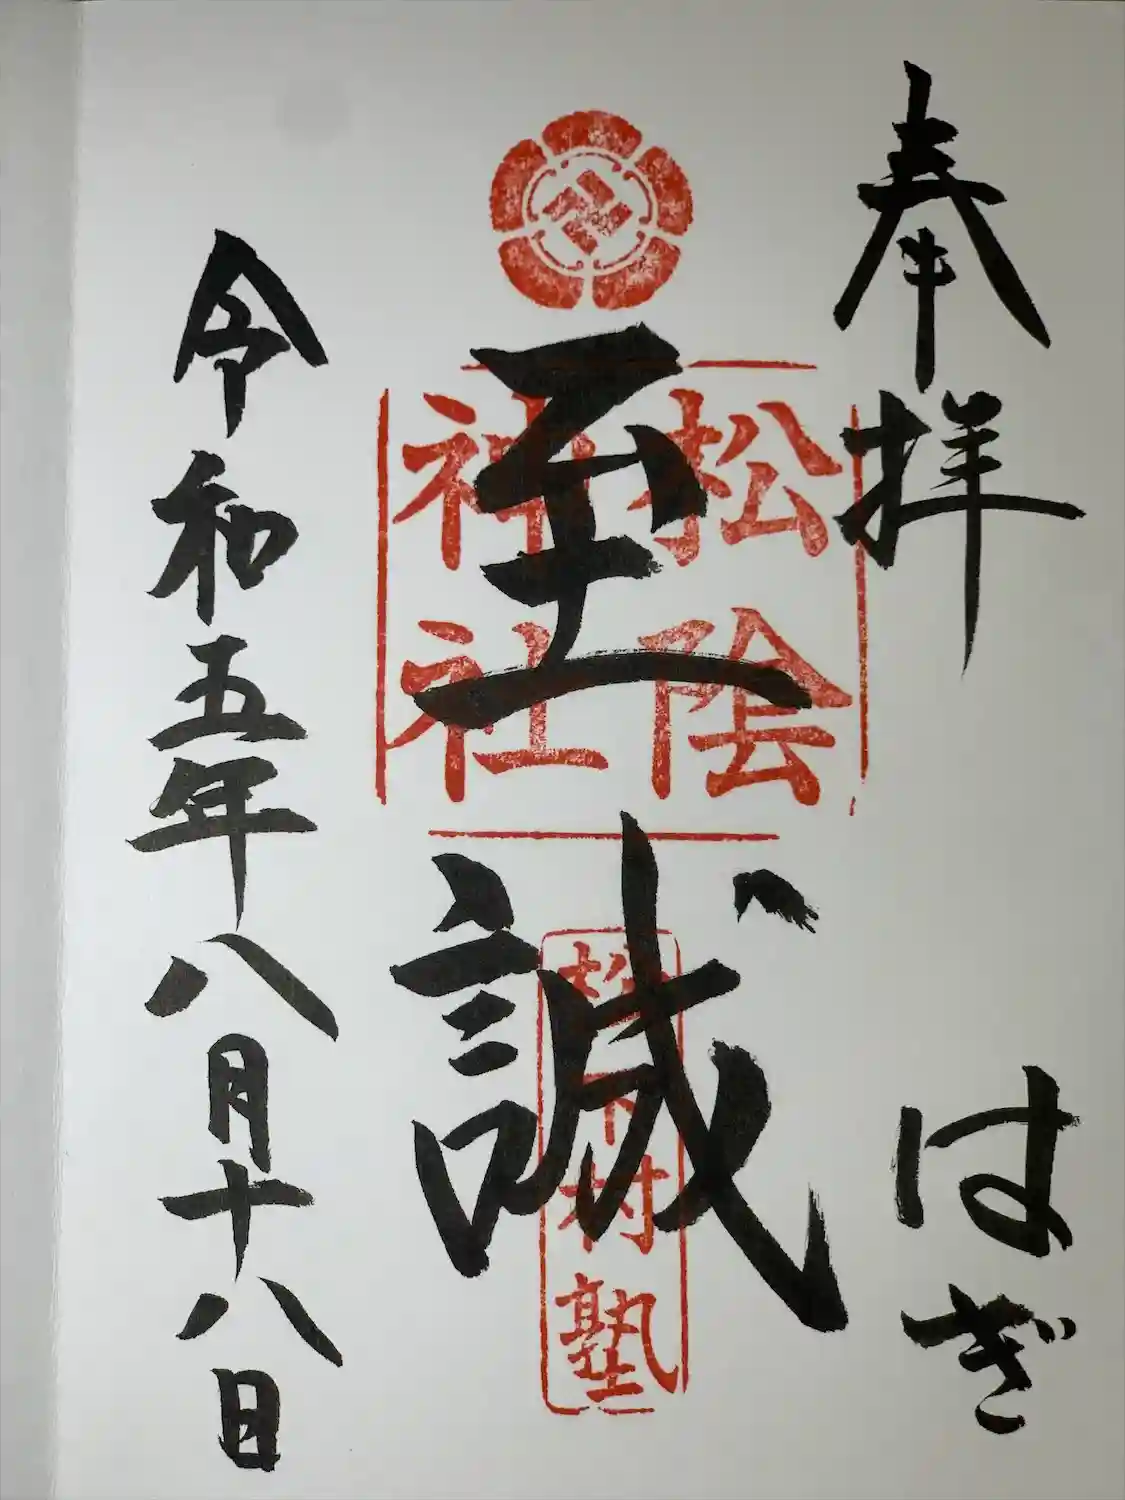 奉拝 はぎ
至誠
松陰
神社
松下村塾
令和五年八月十八日